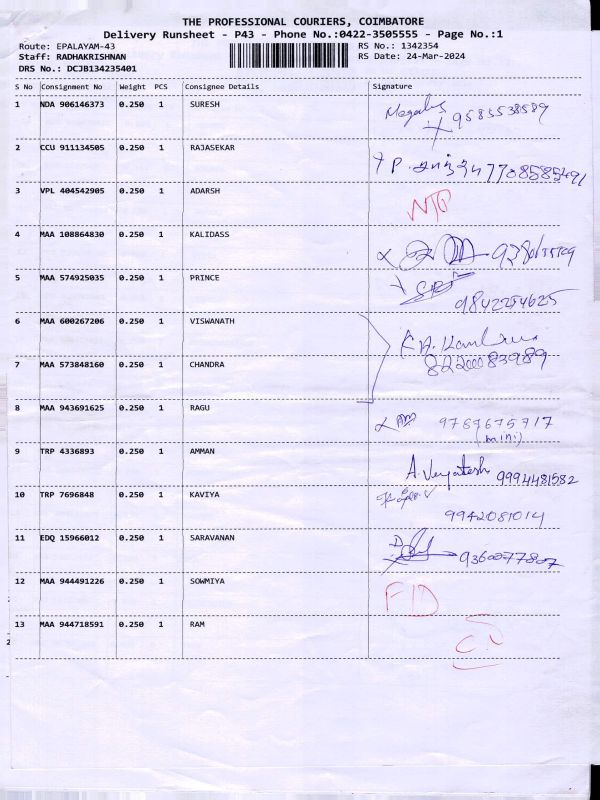 THE PROFESSIONAL COURIERS, COIMBATORE
Delivery Runsheet - P43 - Phone No.:0422-3505555 - Page No.:1
Route: EPALAYAM-43 RS No.: 1342354
Staff: RADHAKRISHNAN RS Date: 24-Mar-2024
DRS No.: DCJB134235401
S No Consignment No Weight PCS Consignee Details Signature
1 NDA 906146373 0.250 1 SURESH 9585538589
2 CCU 911134505 0.250 1 RAJASEKAR P. 7708585491
3 VPL 404542905 0.250 1 ADARSH
4 MAA 108864830 0.250 1 KALIDASS
5 MAA 574925035 0.250 1 PRINCE 9842254625
6 MAA 600267206 0.250 1 VISWANATH
7 MAA 573848160 0.250 1 CHANDRA 8220083989
8 MAA 943691625 0.250 1 RAGU
(mini)
9 TRP 4336893 0.250 1 AMMAN 9994481582
10 TRP 7696848 0.250 1 KAVIYA
9942081014
11 EDQ 15966012 0.250 1 SARAVANAN 9360077807
12 MAA 944491226 0.250 1 SOWMIYA
13 MAA 944718591 0.250 1 RAM